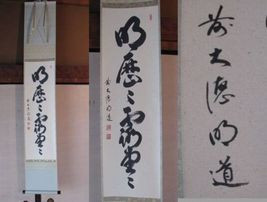 明歴々露堂々
前大徳明道
明歴々露堂々
前大徳明道
前大徳明道